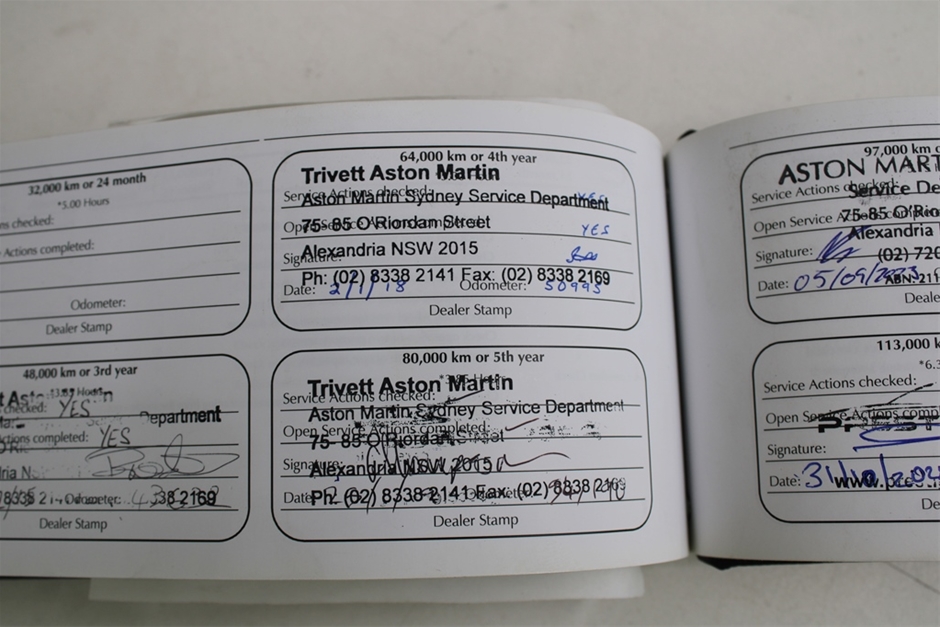 32,000 km or 24 month
*5.00 Hours
ns checked:
Actions completed:
Odometer:
Dealer Stamp
48,000 km or 3rd year
checked: YES
Department
ctions completed: YES
ria N
8338 2 Odometer: 338 2169
Dealer Stamp
64,000 km or 4th year
Trivett Aston Martin
Service Actions checked: YES
Aston Martin Sydney Service Department
75- 85 O'Riordan Street
YES
Alexandria NSW 2015
Signature:
Ph: (02) 8338 2141 Fax: (02) 8338 2169
Date: 2/1/18 Odometer: 50995
Dealer Stamp
80,000 km or 5th year
Trivett Aston Martin
Service Actions checked:
Aston Martin Sydney Service Department
Open Service Actions completed:
75- 85 O'Riordan Street
Signature:
Alexandria NSW 2015
Date:
Ph: (02) 8338 2141 Fax: (02) 8338 2169
Dealer Stamp
97,000 km o
ASTON MART
Service Actions checked:
Service De
75-85 O'Rio
Open Service Actions comple
Alexandria
Signature:
(02) 720
Date: 05/09/2023
ABN: 211
Deale
113,000 k
*6.3
Service Actions checked:
Open Service Actions comp
Signature:
Date: 31/10/202
www.
De